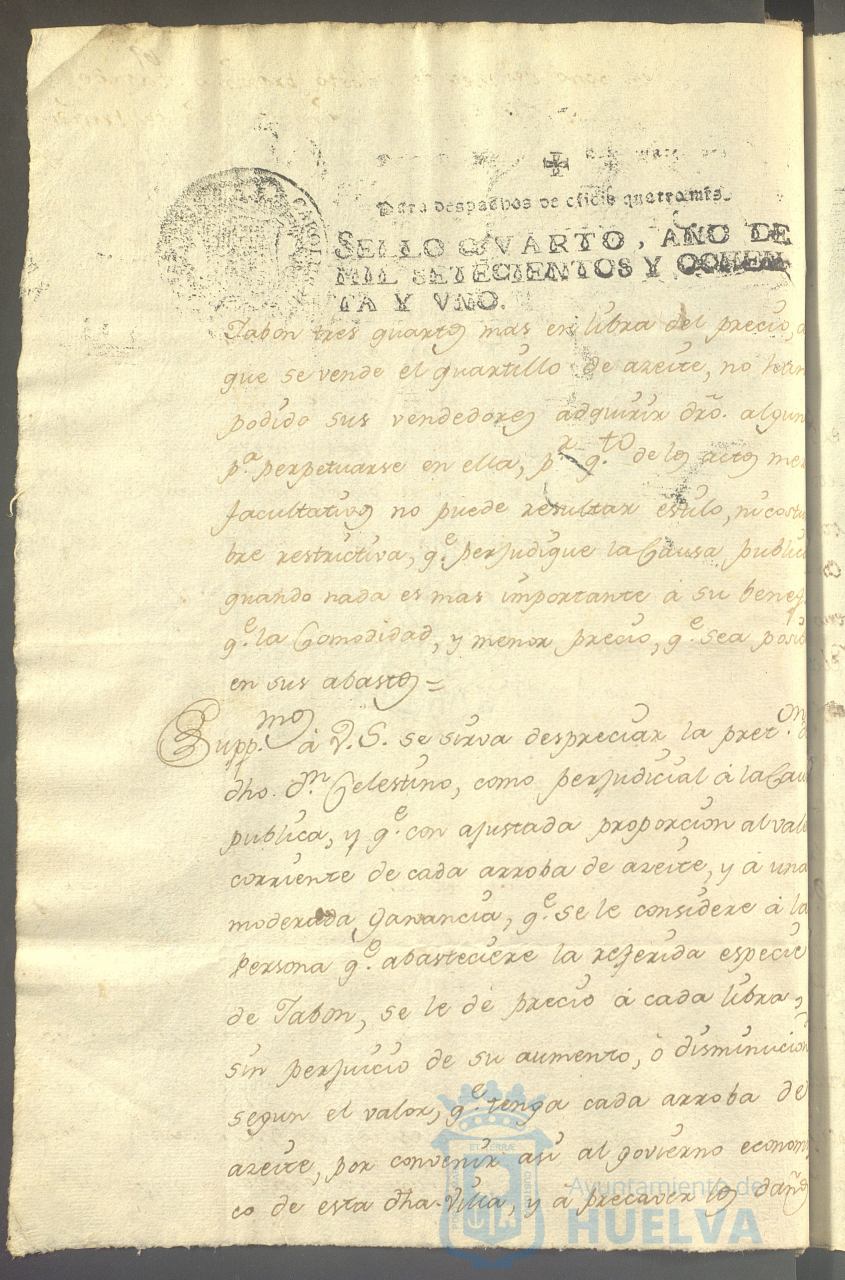 Para despachos de oficio quatro mrs.
SELLO QVARTO, AÑO DE
MIL SETECIENTOS Y OCHEN
TA Y VNO.
Jabon tres quartos mas en libra del precio, a
que se vende el quartillo de azeite, no han
podido sus vendedores adquirir dro. algun
pa. perpetuarse en ella, pr. qto. de los actos mer
facultativos no puede resultar estilo, ni costu
bre restrictiva, qe. perjudique la Causa public
quando nada es mas importante à su benef
qe. la Comodidad, y menor precio, qe. sea posib
en sus abastos =
Suppmos. à V.S. se sirva despreciar la preton. d
dho. Dn. Celestino, como perjudicial à la Cau
publica, y qe. con ajustada proporcion al valo
corriente de cada arroba de azeite, y à una
moderada ganancia, qe. se le considere à la
Persona qe. abasteciere la referida especie
de Jabon, se le dè precio à cada libra,
sin perjuicio de su aumento, ò disminucion
segun el valor, qe. tenga cada arroba de
azeite, por convenir asi al govierno economi
co de esta dha. Villa, y à precaver los daños
Ayuntamiento de
HUELVA